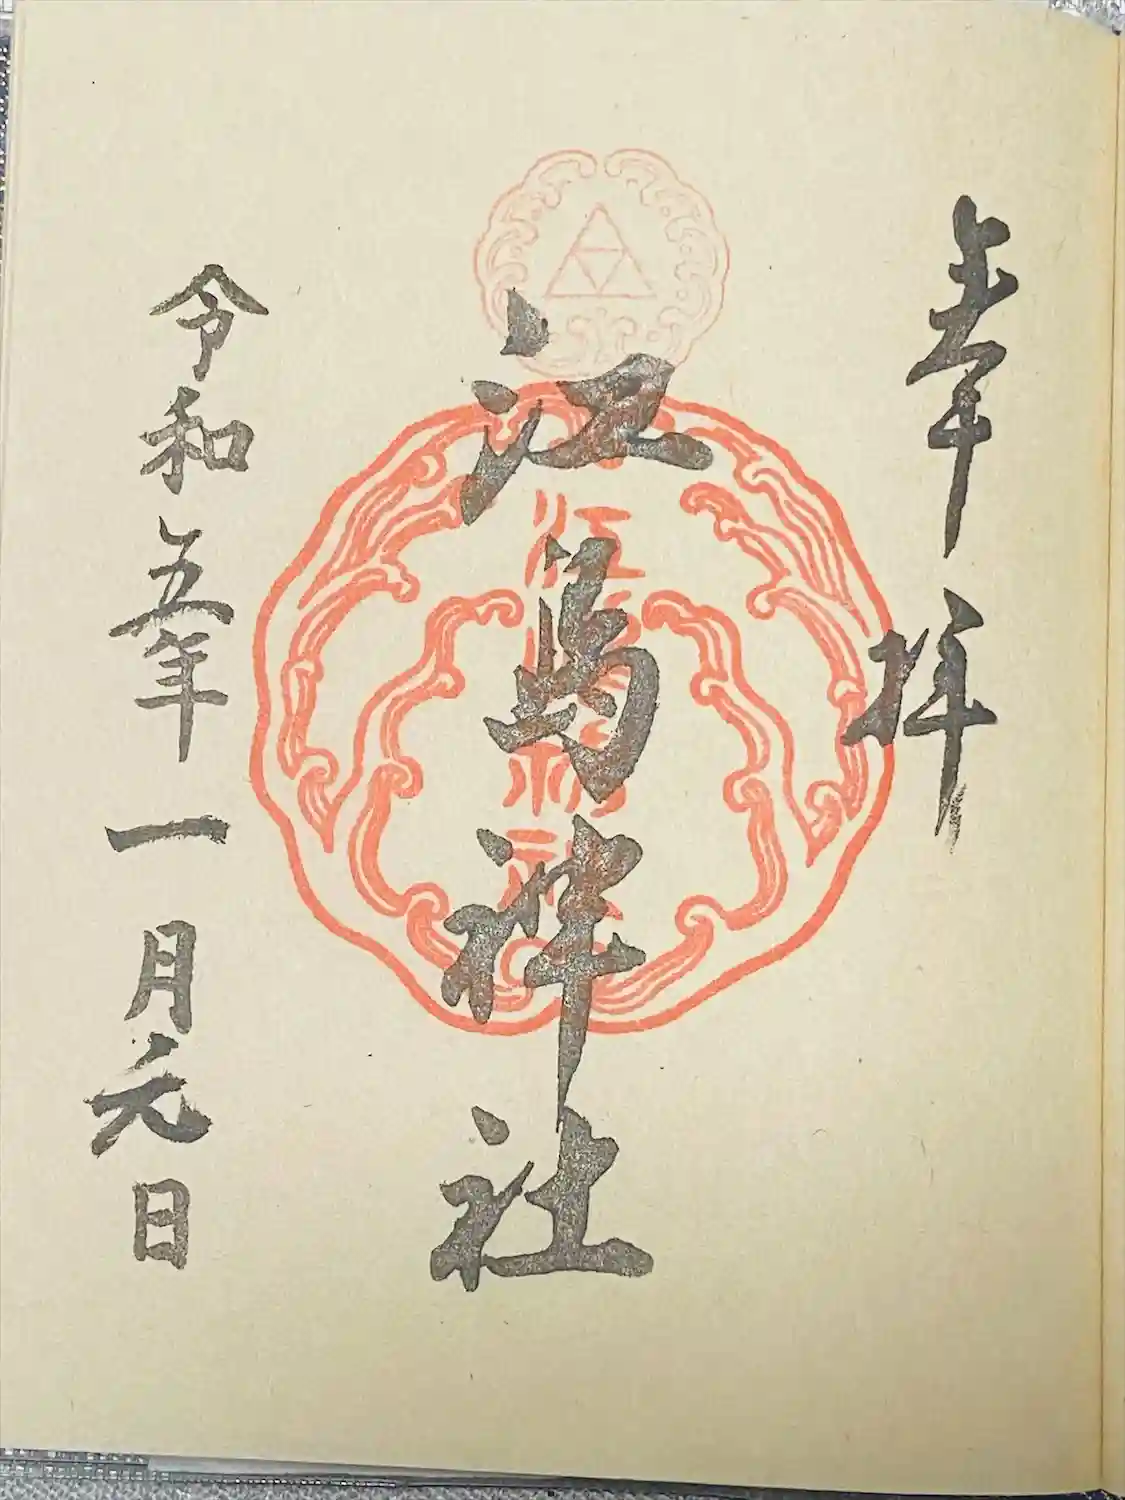 奉拝
江島神社
江島神社
令和五年一月元日